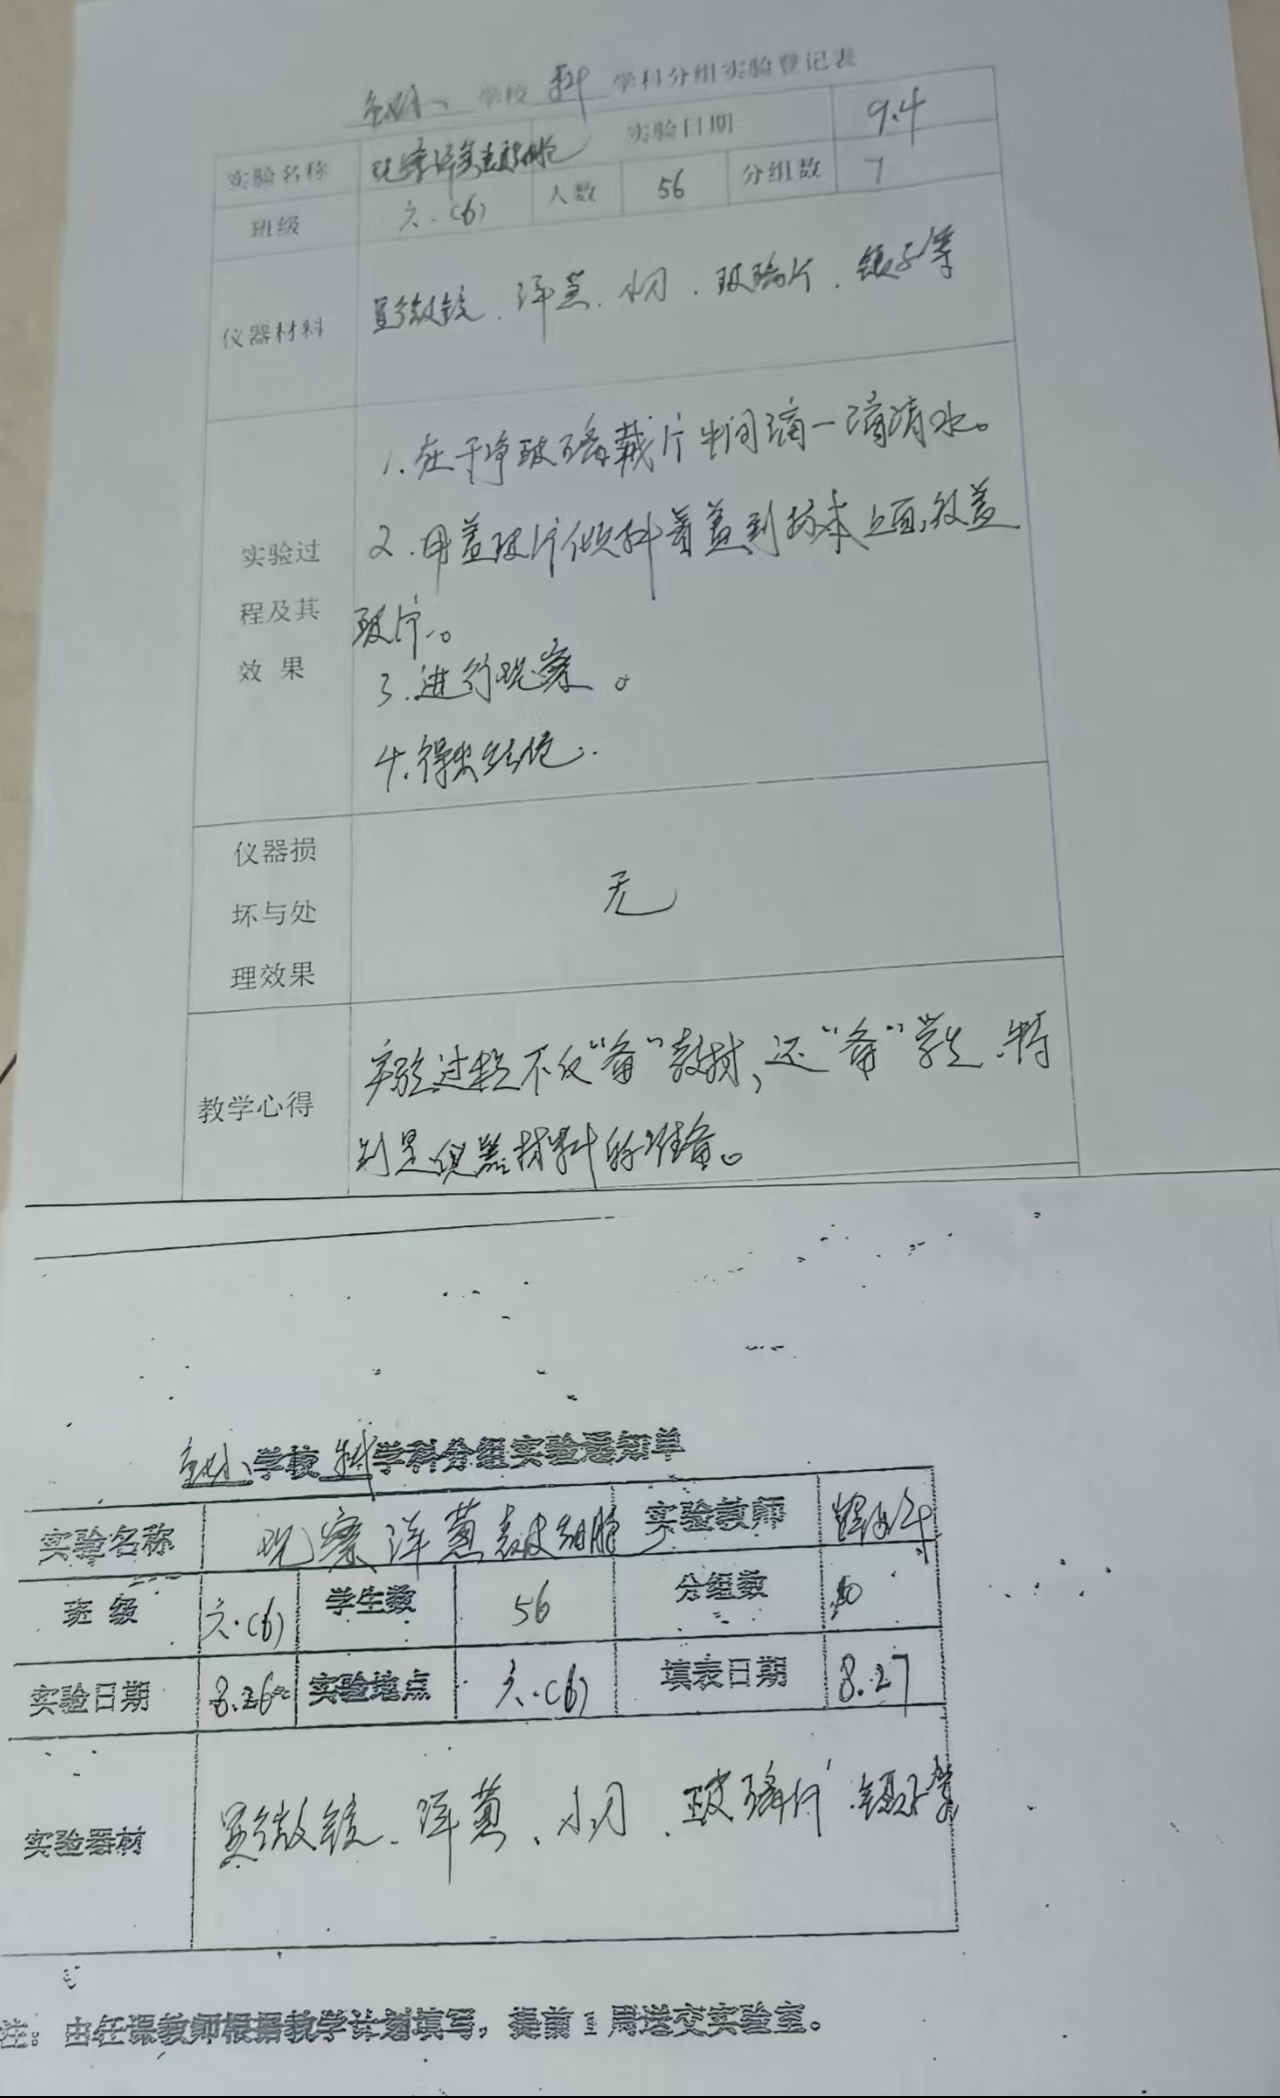 学校 科 学科分组实验登记表
实验名称 观察洋葱表皮细胞 实验日期 9.4
班级 六.(6) 人数 56 分组数 7
仪器材料 显微镜、洋葱、小刀、玻璃片、镊子等
1.在干净玻璃载片中间滴一滴清水。
2.用盖玻片倾斜着盖到标本上面,放盖
玻片。
3.进行观察。
4.得出结论.
实验过
程及其
效 果
仪器损
坏与处
理效果
无
教学心得
实验过程不仅“备”教材,还“备”学生,特
别是仪器材料的准备。
学校 科 学科分组实验通知单
实验名称 观察洋葱表皮细胞 实验教师
班 级 六.(6) 学生数 56 分组数
实验日期 8.26 实验地点 六.(6) 填表日期 8.27
实验器材 显微镜、洋葱、小刀、玻璃片、镊子等
注:由任课教师根据教学计划填写,提前1周送交实验室。